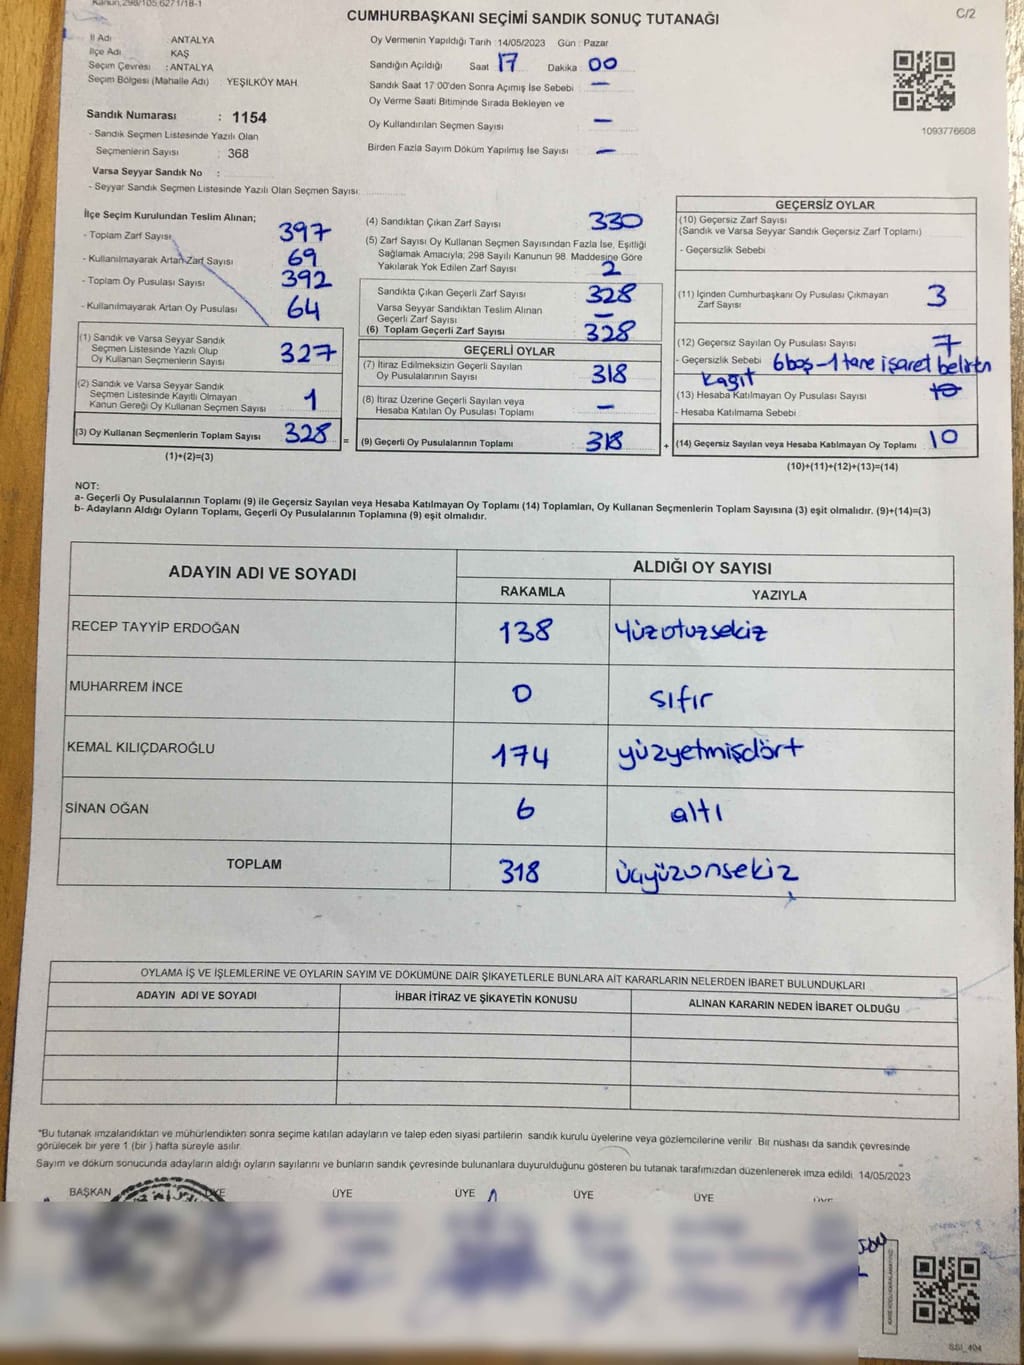 Kanun,298/105,6271/18-1
CUMHURBAŞKANI SEÇİMİ SANDIK SONUÇ TUTANAĞI
C/2
İl Adı ANTALYA
İlçe Adı KAŞ
Seçim Çevresi : ANTALYA
Seçim Bölgesi (Mahalle Adı) YEŞILKÖY MAH
Sandık Numarası : 1154
- Sandık Seçmen Listesinde Yazılı Olan
Seçmenlerin Sayısı : 368
Varsa Seyyar Sandık No :
- Seyyar Sandık Seçmen Listesinde Yazılı Olan Seçmen Sayısı:
Oy Vermenin Yapıldığı Tarih 14/05/2023 Gün : Pazar
Sandığın Açıldığı Saat 17 Dakika 00
Sandık Saat 17:00'den Sonra Açımış İse Sebebi : —
Oy Verme Saati Bitiminde Sırada Bekleyen ve
Oy Kullandırılan Seçmen Sayısı : —
Birden Fazla Sayım Döküm Yapılmış İse Sayısı : —
1093776608
İlçe Seçim Kurulundan Teslim Alınan;
- Toplam Zarf Sayısı 397
- Kullanılmayarak Artan Zarf Sayısı 69
- Toplam Oy Pusulası Sayısı 392
- Kullanılmayarak Artan Oy Pusulası 64
(1) Sandık ve Varsa Seyyar Sandık
Seçmen Listesinde Yazılı Olup
Oy Kullanan Seçmenlerin Sayısı 327
(2) Sandık ve Varsa Seyyar Sandık
Seçmen Listesinde Kayıtlı Olmayan
Kanun Gereği Oy Kullanan Seçmen Sayısı 1
(3) Oy Kullanan Seçmenlerin Toplam Sayısı 328 =
(1)+(2)=(3)
(4) Sandıktan Çıkan Zarf Sayısı 330
(5) Zarf Sayısı Oy Kullanan Seçmen Sayısından Fazla İse, Eşitliği
Sağlamak Amacıyla; 298 Sayılı Kanunun 98. Maddesine Göre
Yakılarak Yok Edilen Zarf Sayısı 2
Sandıkta Çıkan Geçerli Zarf Sayısı 328
Varsa Seyyar Sandıktan Teslim Alınan
Geçerli Zarf Sayısı —
(6) Toplam Geçerli Zarf Sayısı 328
GEÇERLİ OYLAR
(7) İtiraz Edilmeksizin Geçerli Sayılan
Oy Pusulalarının Sayısı 318
(8) İtiraz Üzerine Geçerli Sayılan veya
Hesaba Katılan Oy Pusulası Toplamı : —
(9) Geçerli Oy Pusulalarının Toplamı : 318 +
GEÇERSİZ OYLAR
(10) Geçersiz Zarf Sayısı
(Sandık ve Varsa Seyyar Sandık Geçersiz Zarf Toplamı)
- Geçersizlik Sebebi
(11) İçinden Cumhurbaşkanı Oy Pusulası Çıkmayan
Zarf Sayısı 3
(12) Geçersiz Sayılan Oy Pusulası Sayısı 7
- Geçersizlik Sebebi 6 boş - 1 tane işaret belirten
kağıt
(13) Hesaba Katılmayan Oy Pusulası Sayısı 10
- Hesaba Katılmama Sebebi
(14) Geçersiz Sayılan veya Hesaba Katılmayan Oy Toplamı 10
(10)+(11)+(12)+(13)=(14)
NOT:
a- Geçerli Oy Pusulalarının Toplamı (9) ile Geçersiz Sayılan veya Hesaba Katılmayan Oy Toplamı (14) Toplamları, Oy Kullanan Seçmenlerin Toplam Sayısına (3) eşit olmalıdır. (9)+(14)=(3)
b- Adayların Aldığı Oyların Toplamı, Geçerli Oy Pusulalarının Toplamına (9) eşit olmalıdır.
ADAYIN ADI VE SOYADI
ALDIĞI OY SAYISI
RAKAMLA YAZIYLA
RECEP TAYYİP ERDOĞAN 138 Yüzotuzsekiz
MUHARREM İNCE 0 sıfır
KEMAL KILIÇDAROĞLU 174 yüzyetmişdört
SİNAN OĞAN 6 altı
TOPLAM 318 üçyüzonsekiz
OYLAMA İŞ VE İŞLEMLERİNE VE OYLARIN SAYIM VE DÖKÜMÜNE DAİR ŞİKAYETLERLE BUNLARA AİT KARARLARIN NELERDEN İBARET BULUNDUKLARI
ADAYIN ADI VE SOYADI İHBAR İTİRAZ VE ŞİKAYETİN KONUSU ALINAN KARARIN NEDEN İBARET OLDUĞU
"Bu tutanak imzalandıktan ve mühürlendikten sonra seçime katılan adayların ve talep eden siyasi partilerin sandık kurulu üyelerine veya gözlemcilerine verilir. Bir nüshası da sandık çevresinde
görülecek bir yere 1 (bir ) hafta süreyle asılır.
Sayım ve döküm sonucunda adayların aldığı oyların sayılarını ve bunların sandık çevresinde bulunanlara duyurulduğunu gösteren bu tutanak tarafımızdan düzenlenerek imza edildi. 14/05/2023
BAŞKAN ÜYE ÜYE ÜYE ÜYE ÜYE
SSI_404